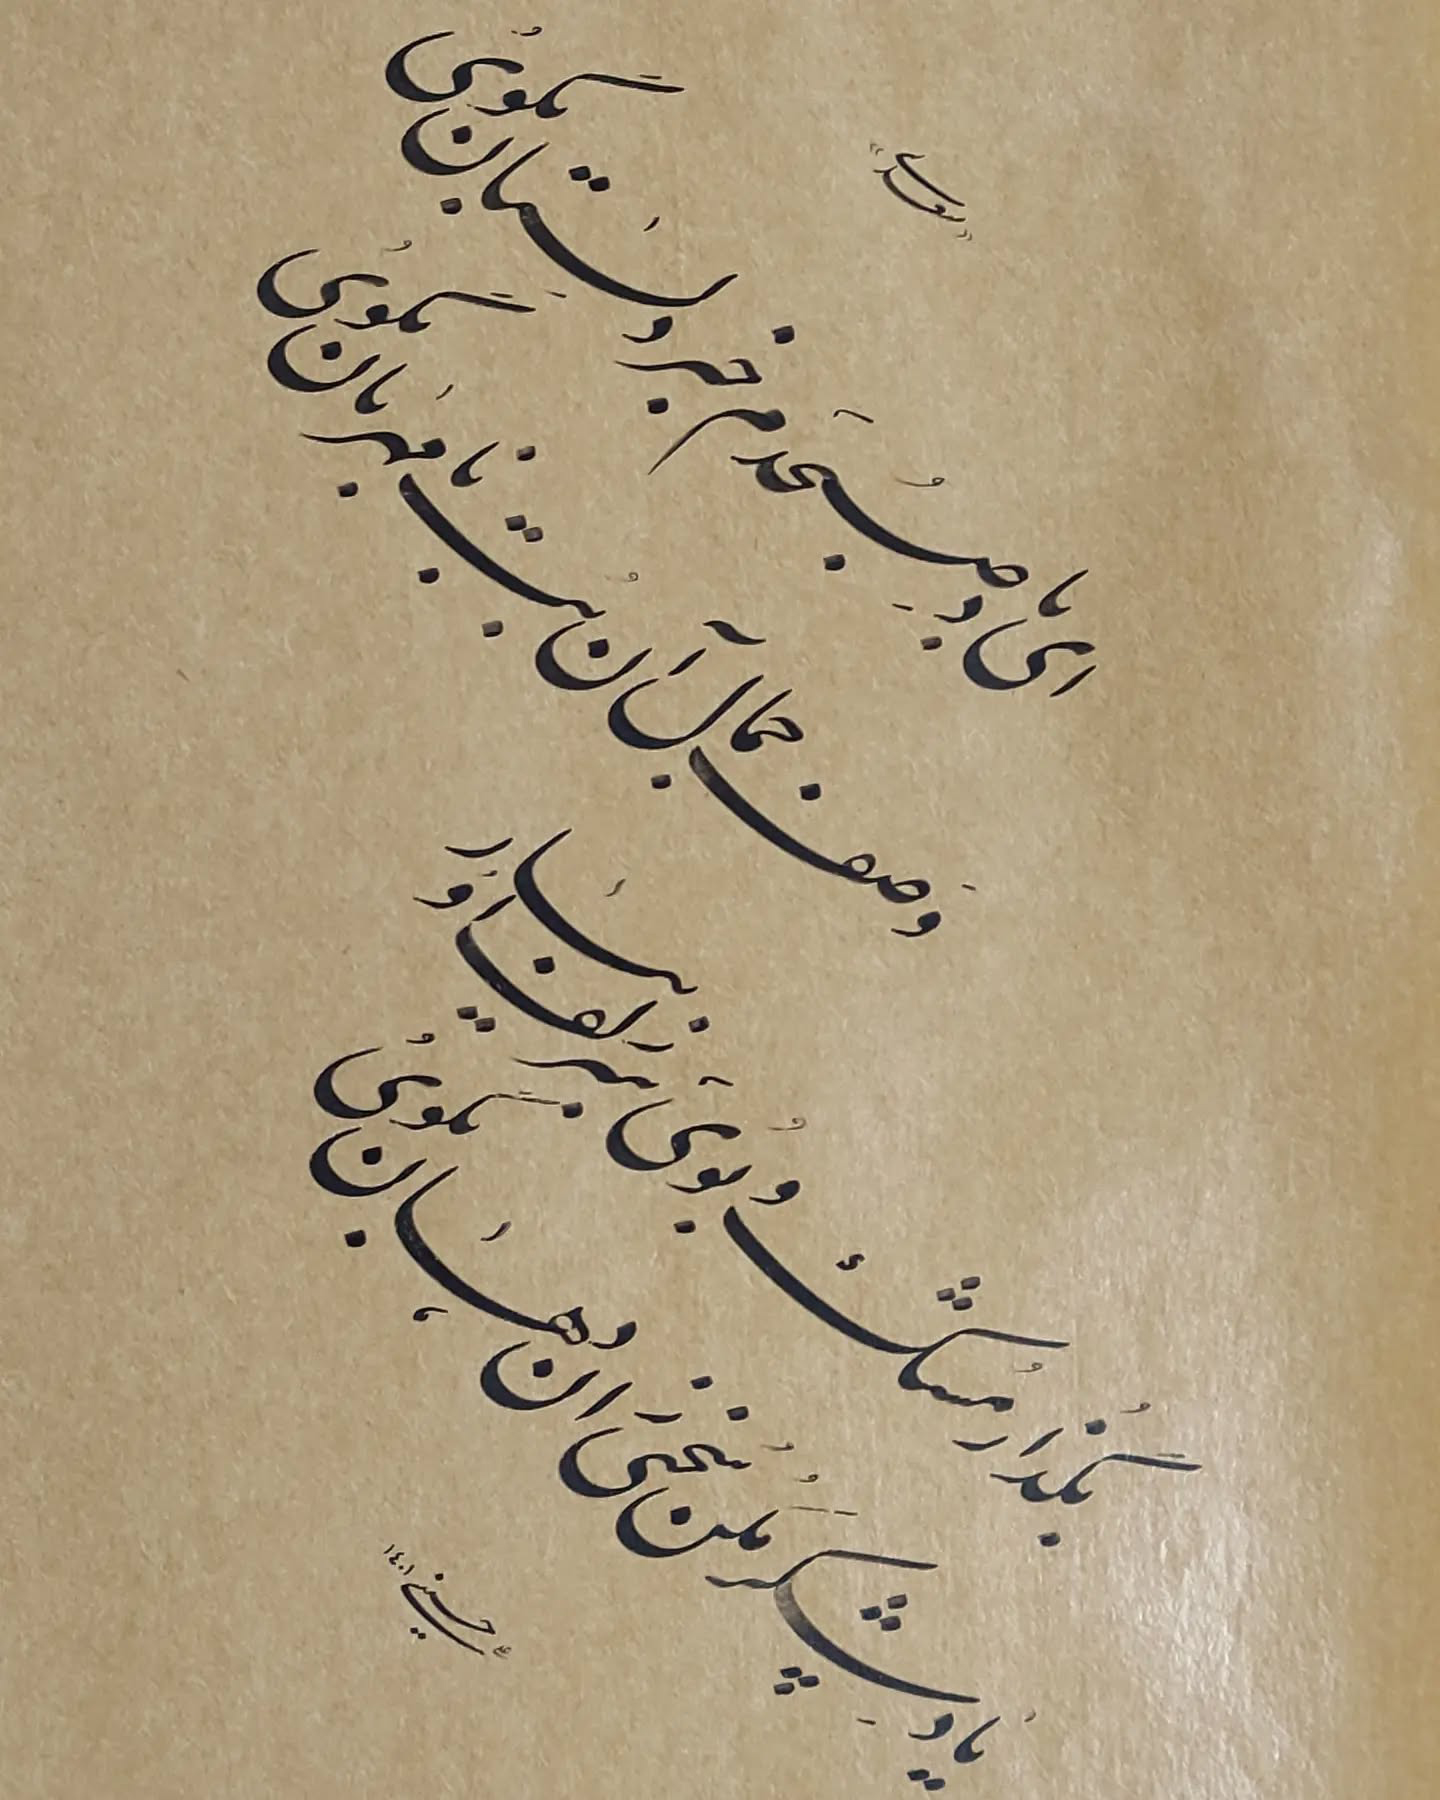 «سعدی»
ای باد صبحدم خبر دلستان بگوی
وصف جمال آن بت نامهربان بگوی
بگذار مشک و بوی سر زلف او بیار
یاد شکر مکن سخنی زان دهان بگوی
حسینی ۱۴۰۱